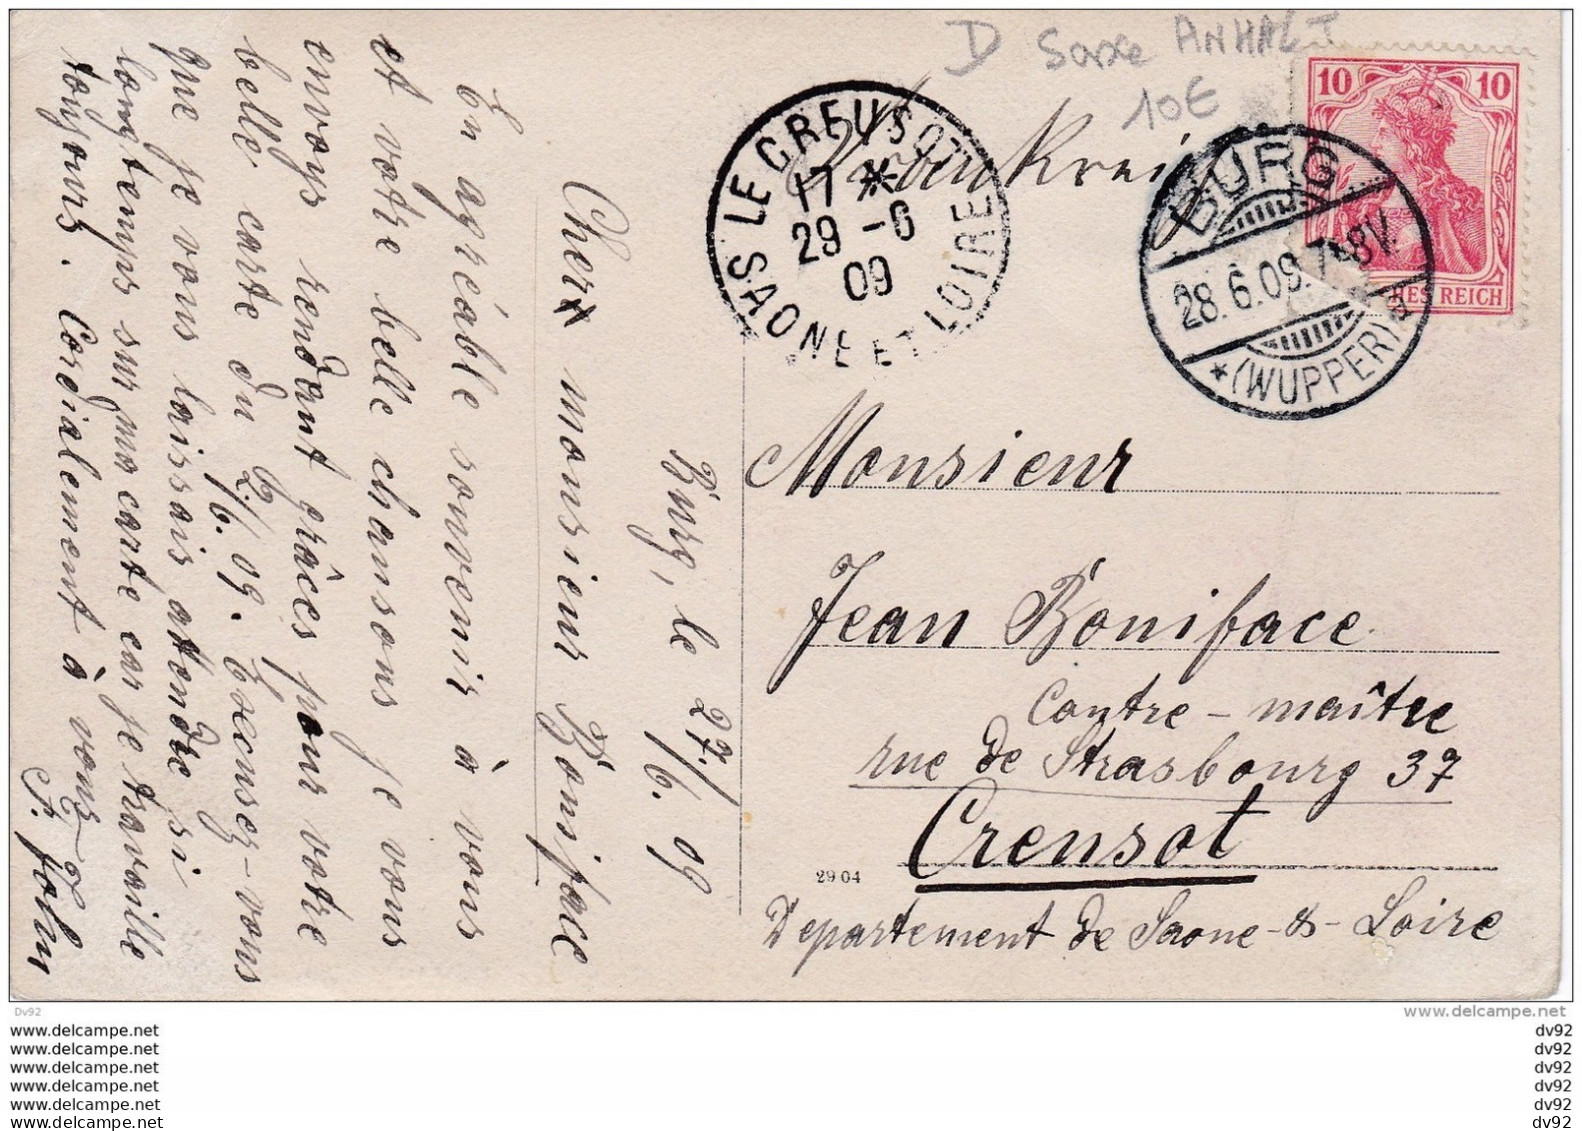 D Saxe ANHALT
10E
Frankreich
LE CREUSOT
17 *
29 - 6
09
SAONE ET LOIRE
BURG
28.6.09. 7-8V.
* (WUPPER) a
10 10
HES REICH
Burg, le 27./6. 09
Cher monsieur Boniface
En agréable souvenir à vous
et votre belle chansons je vous
envoys rendant grâces pour votre
belle carte du 2./6. 09. Excusez-vous
que je vous laissais attendre si
longtemps sur ma carte car je travaille
toujours. Cordialement à vous
F. John
Monsieur
Jean Boniface
Contre-maître
rue de Strasbourg 37
Creusot
29 04
Departement de Saone-&-Loire
Dv92
www.delcampe.net
www.delcampe.net
www.delcampe.net
www.delcampe.net
www.delcampe.net
www.delcampe.net
www.delcampe.net
dv92
dv92
dv92
dv92
dv92
dv92